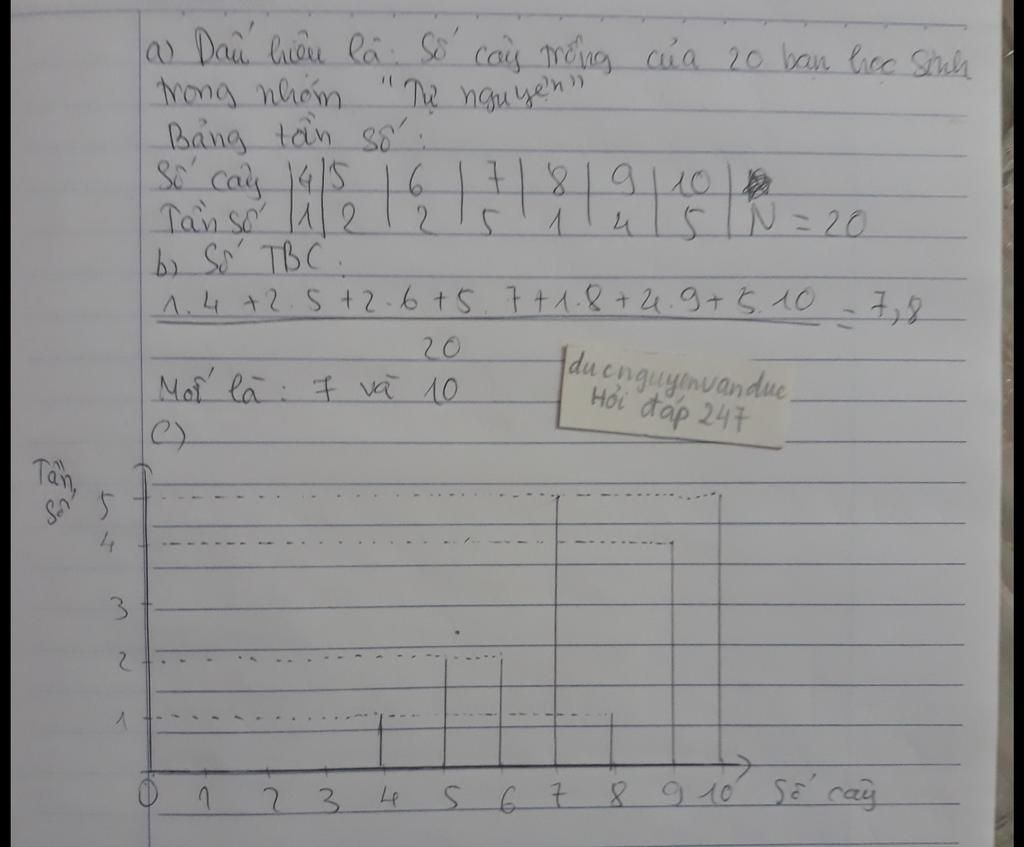 a) Dấu hiệu là: Số cây trồng của 20 bạn học sinh
trong nhóm "Tự nguyện"
Bảng tần số:
Số cây | 4 | 5 | 6 | 7 | 8 | 9 | 10 |
Tần số | 1 | 2 | 2 | 5 | 1 | 4 | 5 | N = 20
b) Số TBC:
1.4 + 2.5 + 2.6 + 5.7 + 1.8 + 4.9 + 5.10 = 7,8
20
Mốt là: 7 và 10
ducnguyenvanduc
Hỏi đáp 247
c)
Tần
số
5
4
3
2
1
0 1 2 3 4 5 6 7 8 9 10 Số cây